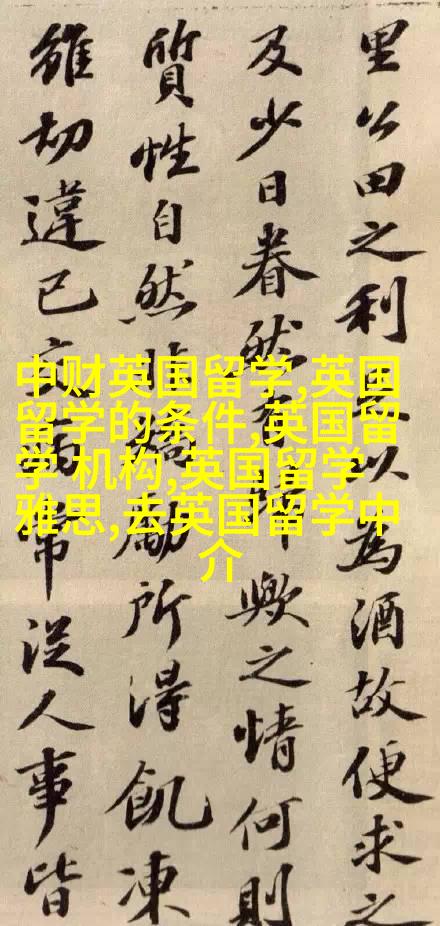 里公田之利以為酒故便求之
及少日眷然有歸歟之情何則
質性自然非矯勵所得飢凍
雖切違已交病常從人事皆
中财英国留学,英国
留学的条件,英国留
学 机构,英国留学
雅思,去英国留学中
介